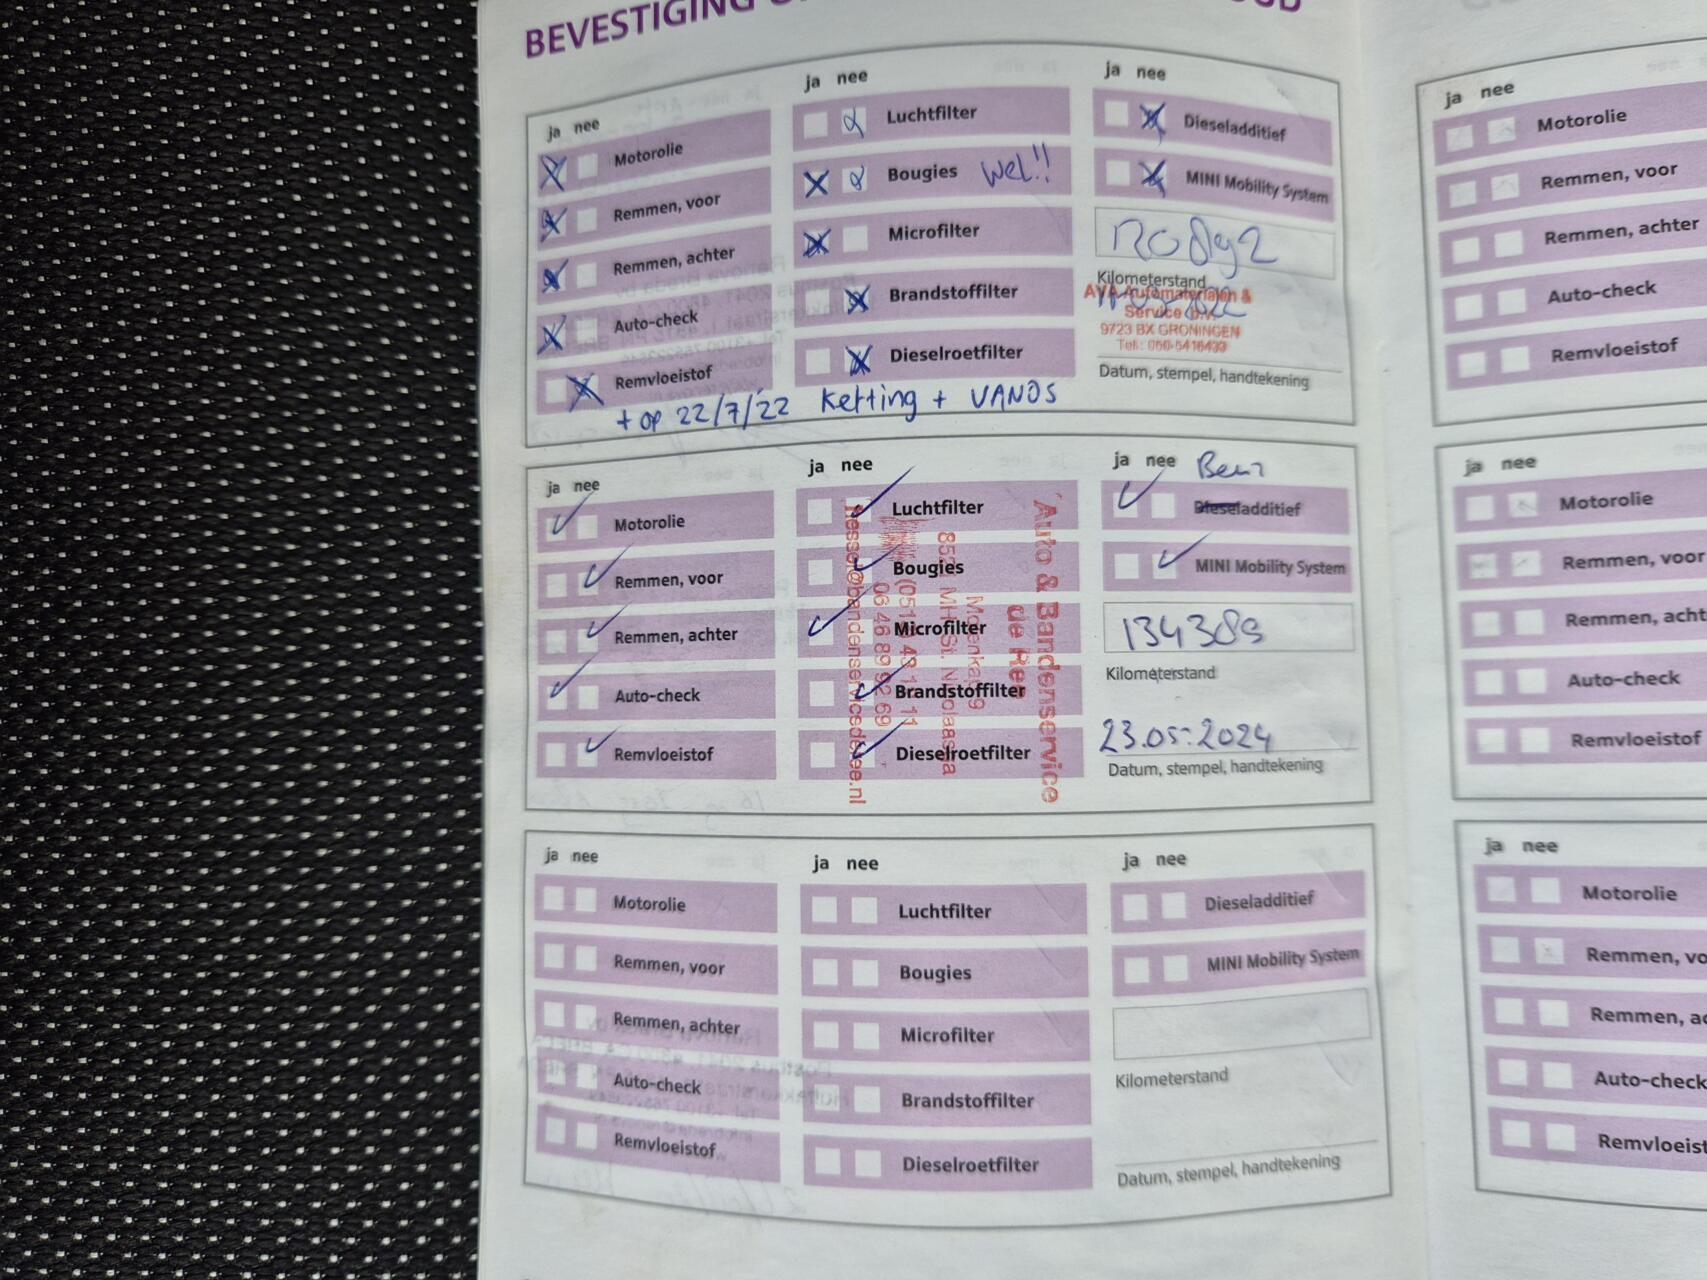 BEVESTIGING
ja nee
Motorolie
Remmen, voor
Remmen, achter
Auto-check
Remvloeistof
ja nee
Luchtfilter
Bougies Wel!!
Microfilter
Brandstoffilter
Dieselroetfilter
ja nee
Dieseladditief
MINI Mobility System
Kilometerstand
AVA Automaterialen &
Service b.v.
9723 BX GRONINGEN
Tel.: 050-5416433
Datum, stempel, handtekening
+ op 22/7/22 Ketting + VANOS
ja nee
Motorolie
Remmen, voor
Remmen, achter
Auto-check
Remvloeistof
ja nee
Luchtfilter
Bougies
Microfilter
Brandstoffilter
Dieselroetfilter
Auto & Bandenservice
ja nee
Dieseladditief
MINI Mobility System
134389
Kilometerstand
23.05.2024
Datum, stempel, handtekening
ja nee
Motorolie
Remmen, voor
Remmen, achter
Auto-check
Remvloeistof
ja nee
Luchtfilter
Bougies
Microfilter
Brandstoffilter
Dieselroetfilter
ja nee
Dieseladditief
MINI Mobility System
Kilometerstand
Datum, stempel, handtekening
ja nee
Motorolie
Remmen, voor
Remmen, achter
Auto-check
Remvloeistof
ja nee
Motorolie
Remmen, voor
Remmen, acht
Auto-check
Remvloeistof
ja nee
Motorolie
Remmen, vo
Remmen, ac
Auto-check
Remvloeist